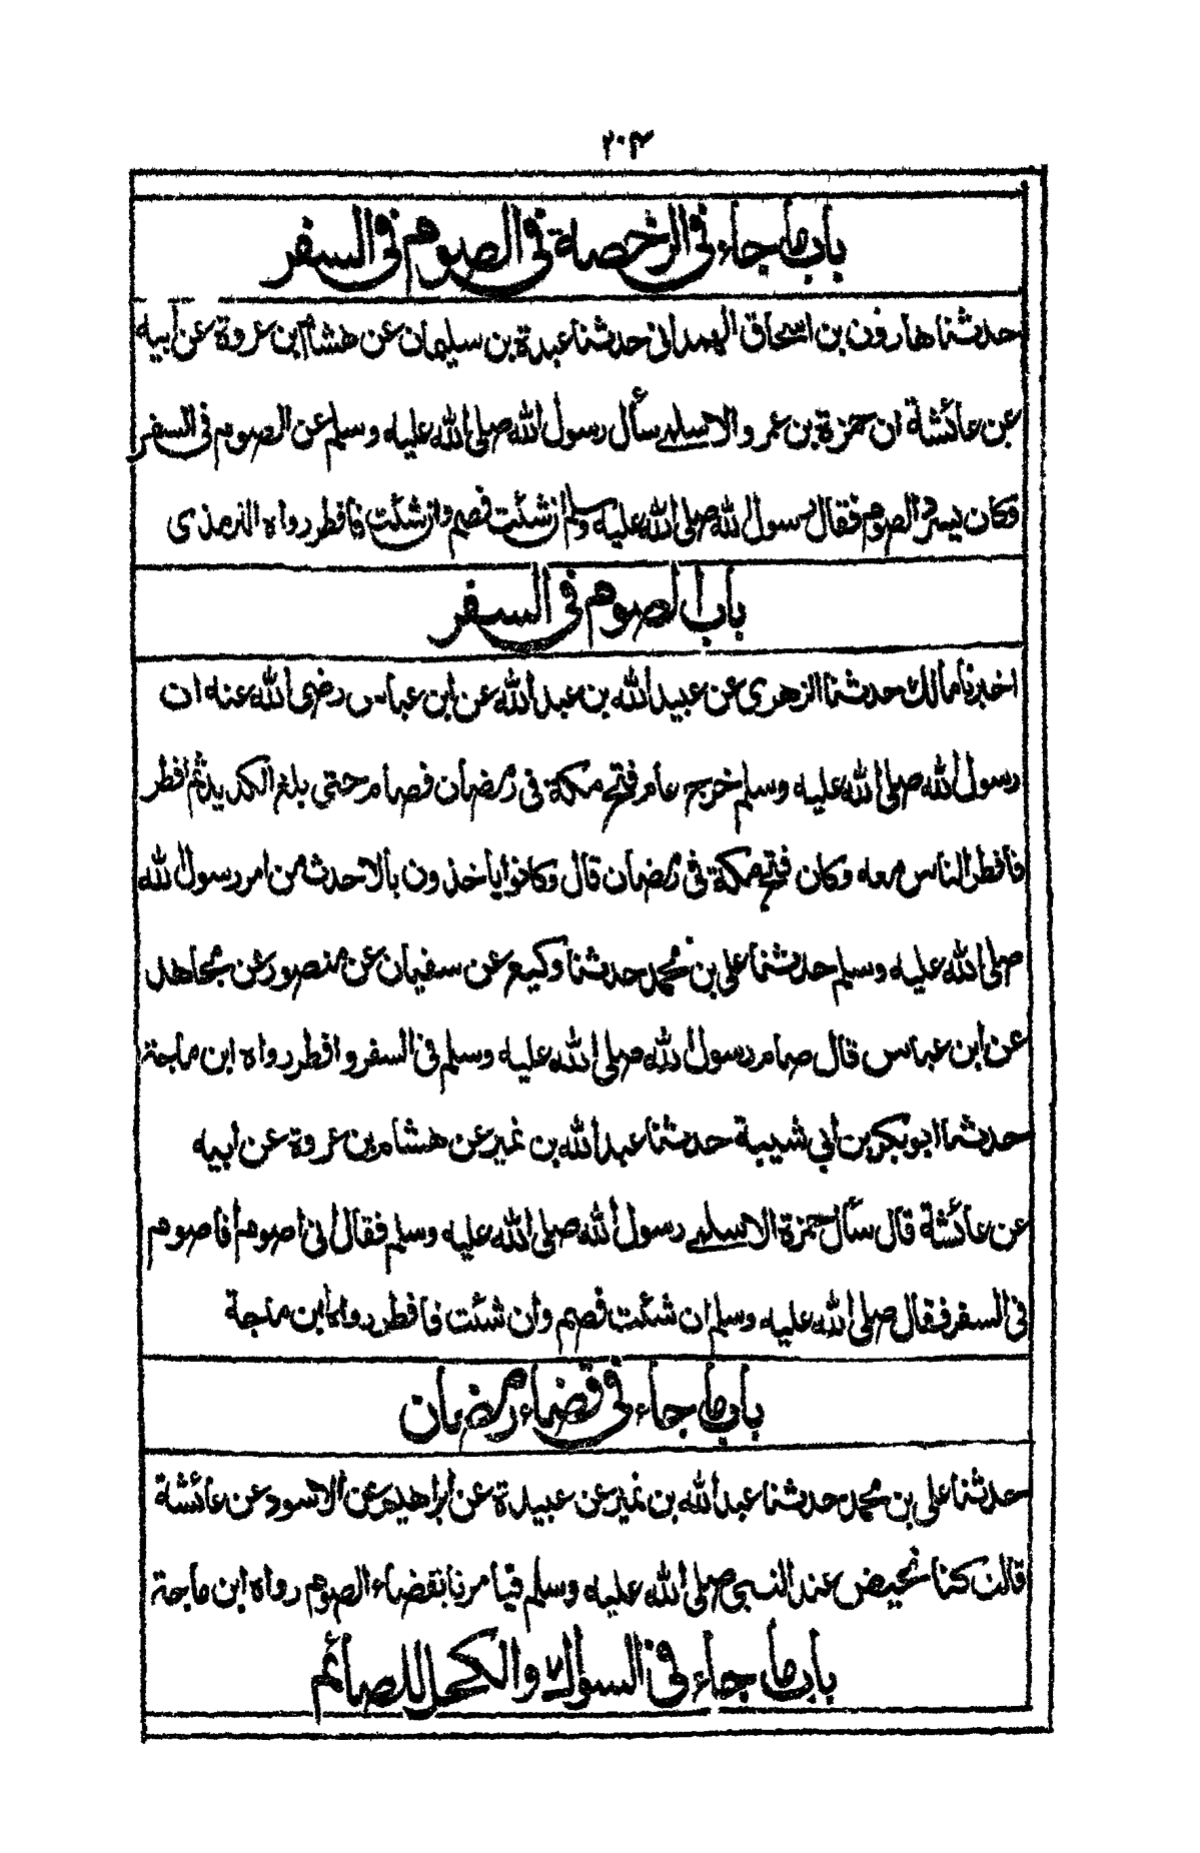 ٢٠٣
باب ما جاء فى الرخصة فى الصوم فى السفر
حدثنا هارون بن اسحاق الهمدانى حدثنا عبدة بن سليمان عن هشام ابن عروة عن أبيه
عن عائشة ان حمزة بن عمر والاسلمى سأل رسول الله صلى الله عليه وسلم عن الصوم فى السفر
وكان يسرد الصوم فقال رسول الله صلى الله عليه وسلم ان شئت فصم وان شئت فافطر رواه الترمذى
باب الصوم فى السفر
اخبرنا مالك حدثنا الزهرى عن عبيد الله بن عبد الله عن ابن عباس رضى الله عنه ان
رسول الله صلى الله عليه وسلم خرج عام فتح مكة فى رمضان فصام حتى بلغ الكديد ثم افطر
فافطر الناس معه وكان فتح مكة فى رمضان قال وكانوا يأخذون بالاحدث من امر رسول الله
صلى الله عليه وسلم حدثنا على بن محمد حدثنا وكيع عن سفيان عن منصور عن مجاهد
عن ابن عباس قال صام رسول الله صلى الله عليه وسلم فى السفر وافطر رواه ابن ماجة
حدثنا ابوبكر بن أبي شيبة حدثنا عبد الله بن نمير عن هشام بن عروة عن أبيه
عن عائشة قال سأل حمزة الاسلمى رسول الله صلى الله عليه وسلم فقال انى اصوم أفاصوم
فى السفر فقال صلى الله عليه وسلم ان شئت فصم وان شئت فافطر رواه ابن ماجة
باب ما جاء فى قضاء رمضان
حدثنا على بن محمد حدثنا عبد الله بن نمير عن عبيدة عن ابراهيم عن الاسود عن عائشة
قالت كنا نحيض عند النبى صلى الله عليه وسلم فيامرنا بقضاء الصوم رواه ابن ماجة
باب ما جاء فى السواك والكحل للصائم